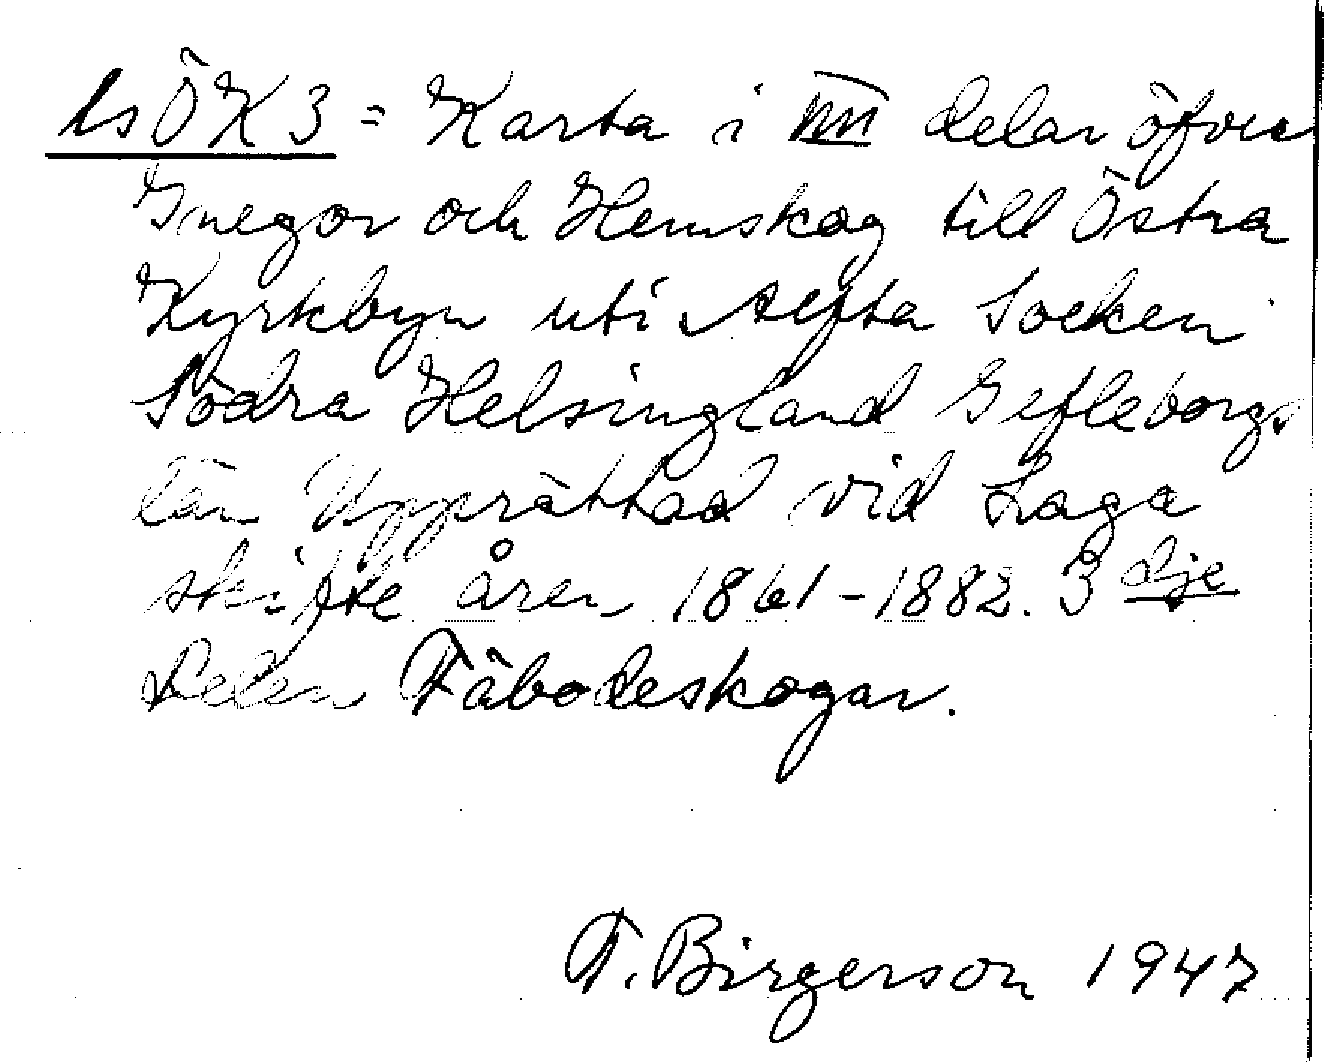 LsÖK3 = Karta i IIII delar öfver
Inegor och Hemskog till Östra
Kyrkbyn uti Alfta Socken
Södra Helsingland Gefleborgs
län Upprättad vid Laga
skifte åren 1861-1882. 3dje
Delen Fäbodeskogar.
F. Birgerson 1947